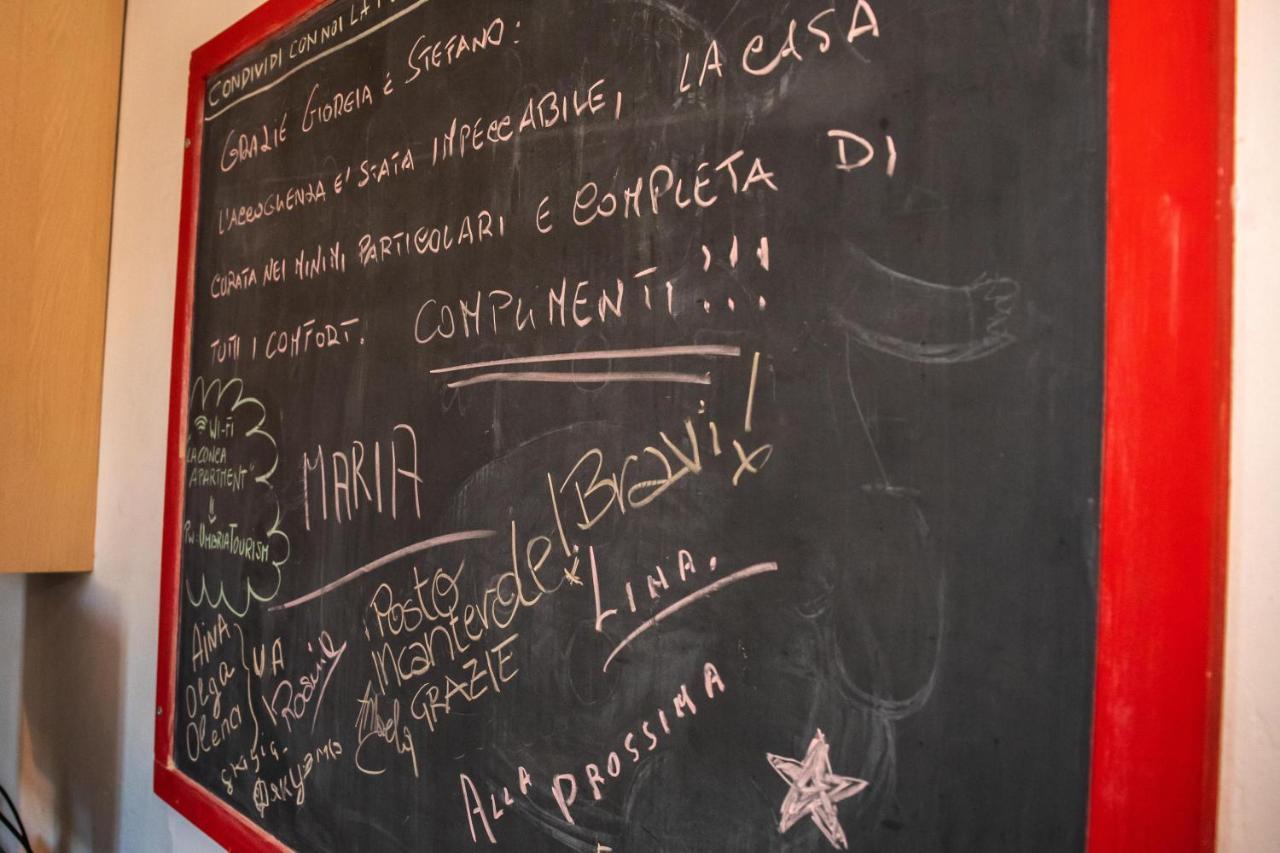 CONDIVIDI CON NOI LA
GRAZIE GIORGIA E STEFANO:
L'ACCOGLIENZA E' STATA IMPECCABILE, LA CASA
CURATA NEI MINIMI PARTICOLARI E COMPLETA DI
TUTTI I COMFORT. COMPLIMENTI!!!
WI-FI
"LA CONCA
APARTMENT"
PW: UMBRIATOURISM
MARIA
Bravi!
LINA.
Posto
incantevole!
GRAZIE
AINA
Olga
Olena
UA
ALLA PROSSIMA